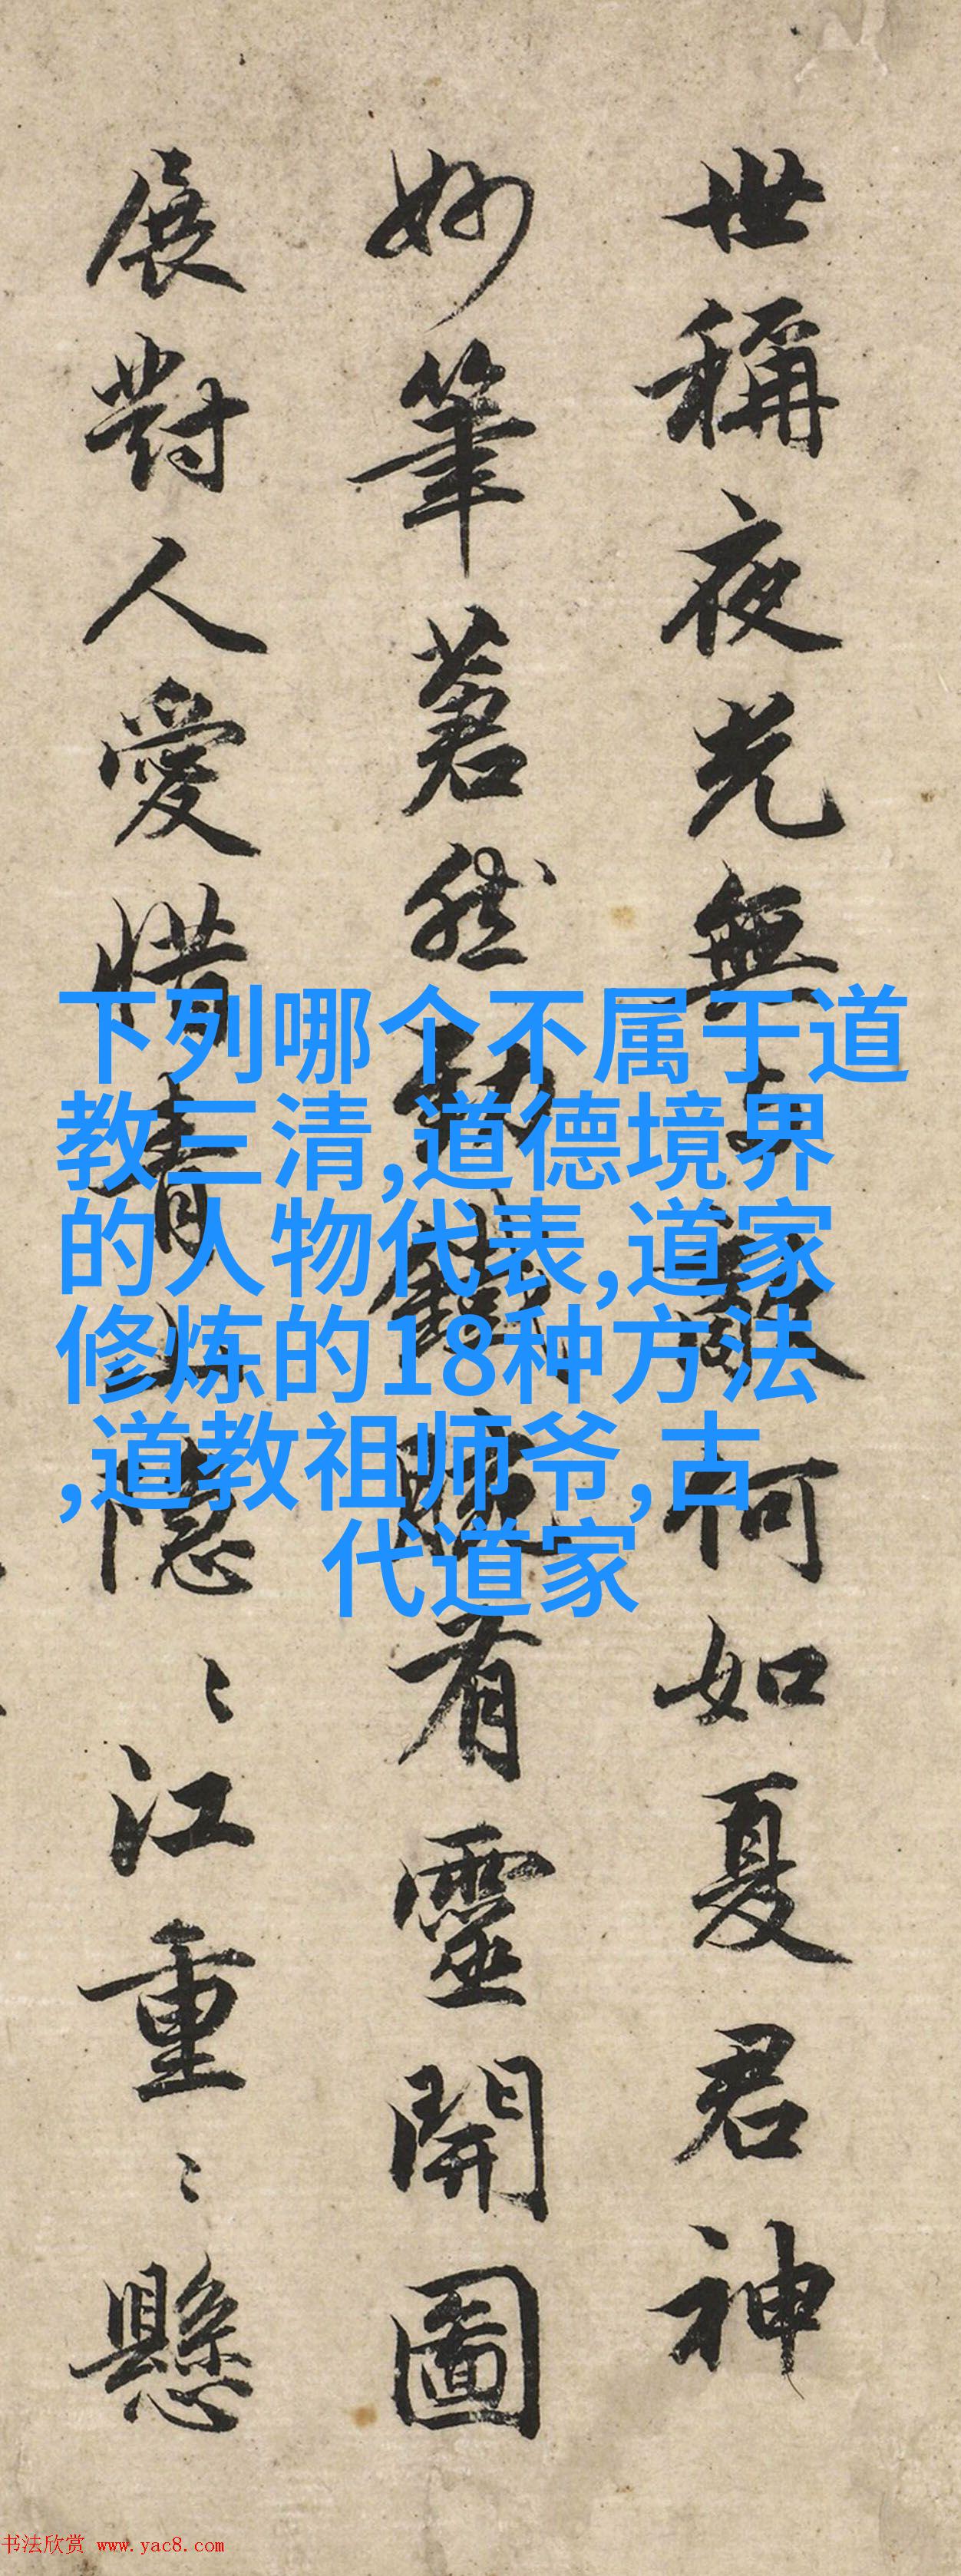 世稱夜光無与敵何如夏君神
妙筆然有靈開圖
展對人愛惜青山隱〻江重〻懸
下列哪个不属于道
教三清,道德境界
的人物代表,道家
修炼的18种方法
,道教祖师爷,古
代道家
书法欣赏 www.yac8.com